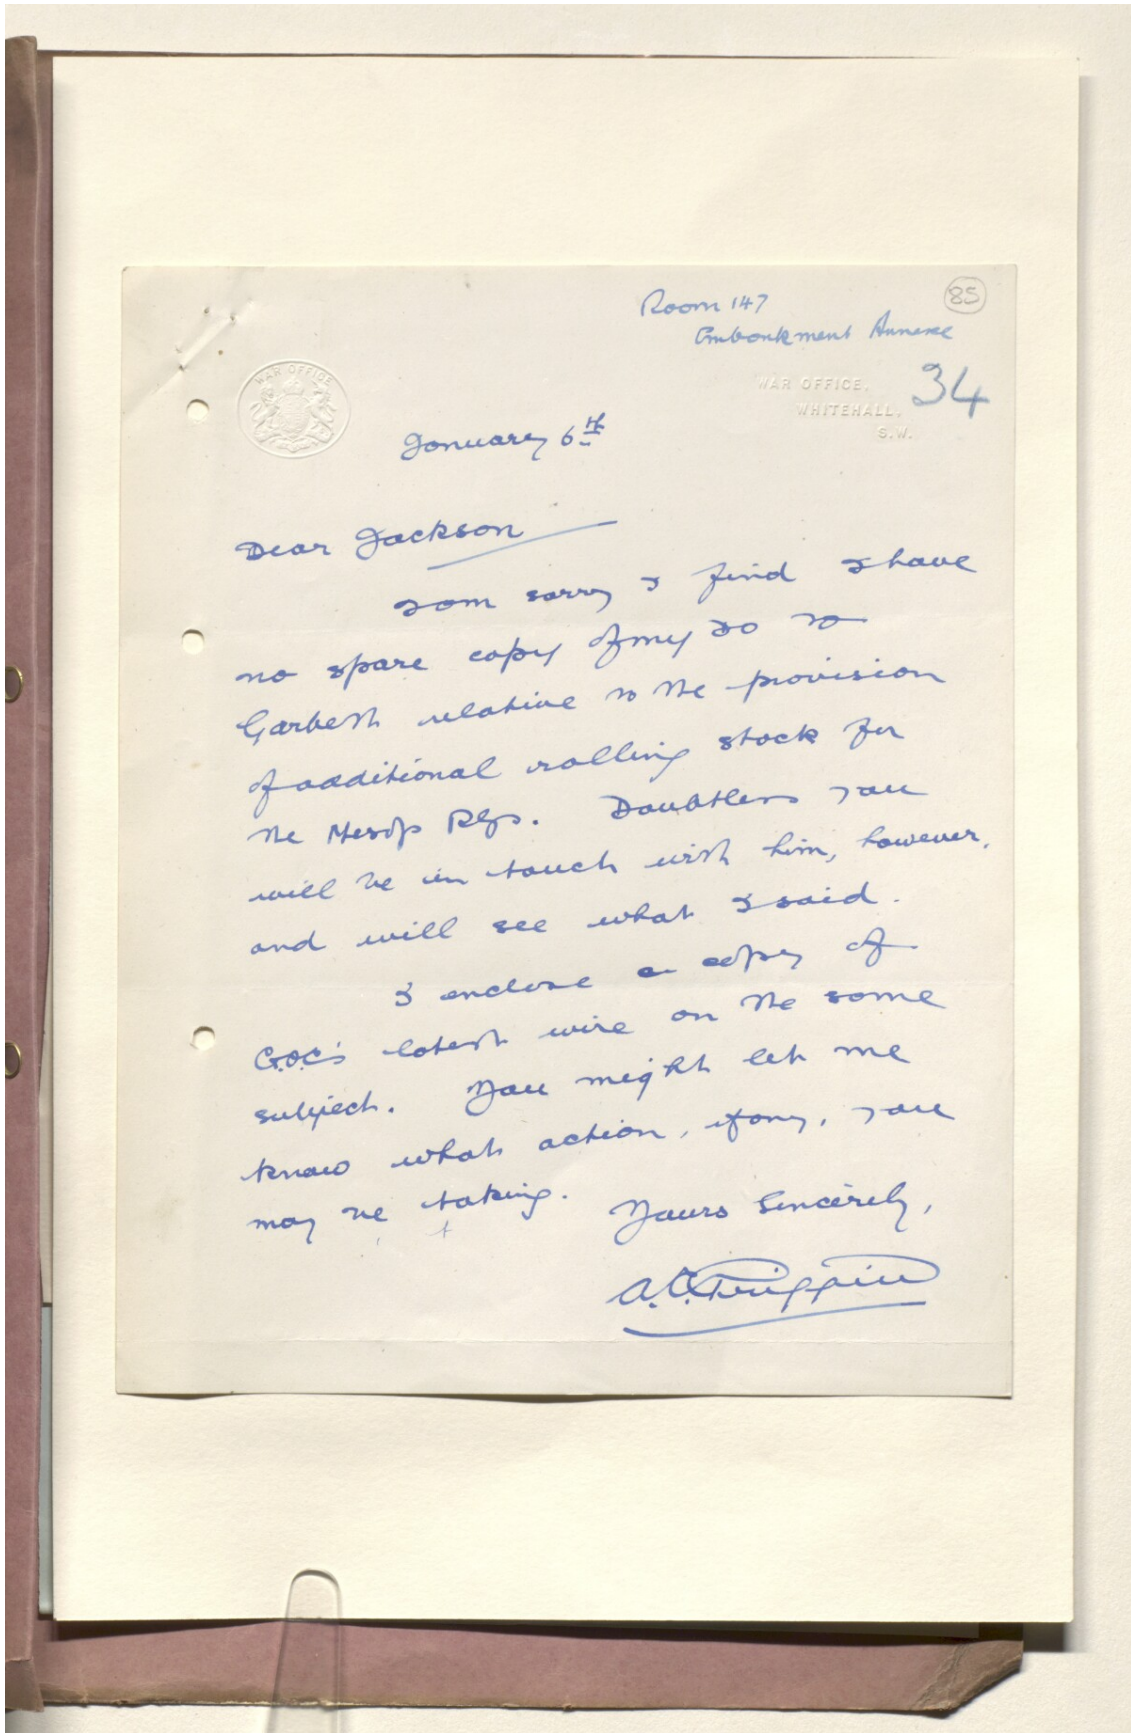 85
Room 147
Embankment Annexe
34
WAR OFFICE
WAR OFFICE,
WHITEHALL,
S.W.
January 6th
Dear Jackson
I am sorry I find I have
no spare copy of my DO to
Garbett relative to the provision
of additional rolling stock for
the Mesop Rlys. Doubtless you
will be in touch with him, however,
and will see what I said.
I enclose a copy of
G.O.C's latest wire on the same
subject. You might let me
know what action, if any, you
may be taking.
Yours Sincerely,